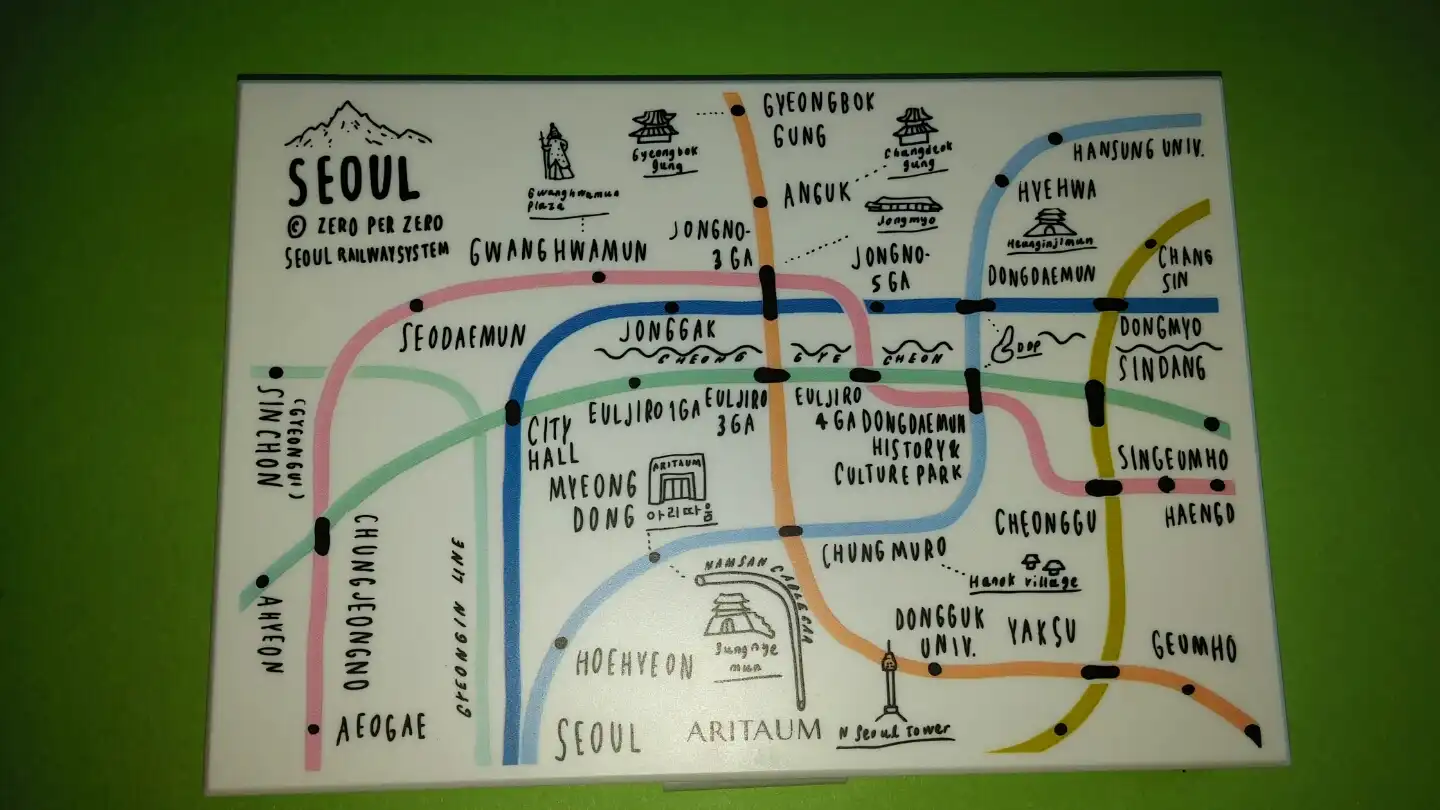 SEOUL
© ZERO PER ZERO
SEOUL RAILWAYSYSTEM
Gwanghwamun
Plaza
GWANGHWAMUN
Gyeongbok
gung
GYEONGBOK
GUNG
Changdeok
gung
ANGUK
Jongmyo
JONGNO-
3GA
JONGNO-
5GA
HANSUNG UNIV.
HYEHWA
Heunginjimun
DONGDAEMUN
CHANG
SIN
SEODAEMUN
JONGGAK
CHEONG
GYE
CHEON
DDP
DONGMYO
SINDANG
SINCHON
(GYEONGUI)
CITY
HALL
EULJIRO 1GA
EULJIRO
3GA
EULJIRO
4GA
DONGDAEMUN
HISTORY&
CULTURE PARK
SINGEUMHO
HAENGD
CHEONGGU
MYEONG
DONG
ARITAUM
아리따움
CHUNGMURO
Hanok village
NAMSAN CABLE CAR
Sungnye
mun
AHYEON
CHUNGJEONGNO
GYEONGIN LINE
AEOGAE
HOEHYEON
SEOUL
ARITAUM
N Seoul Tower
DONGGUK
UNIV.
YAKSU
GEUMHO